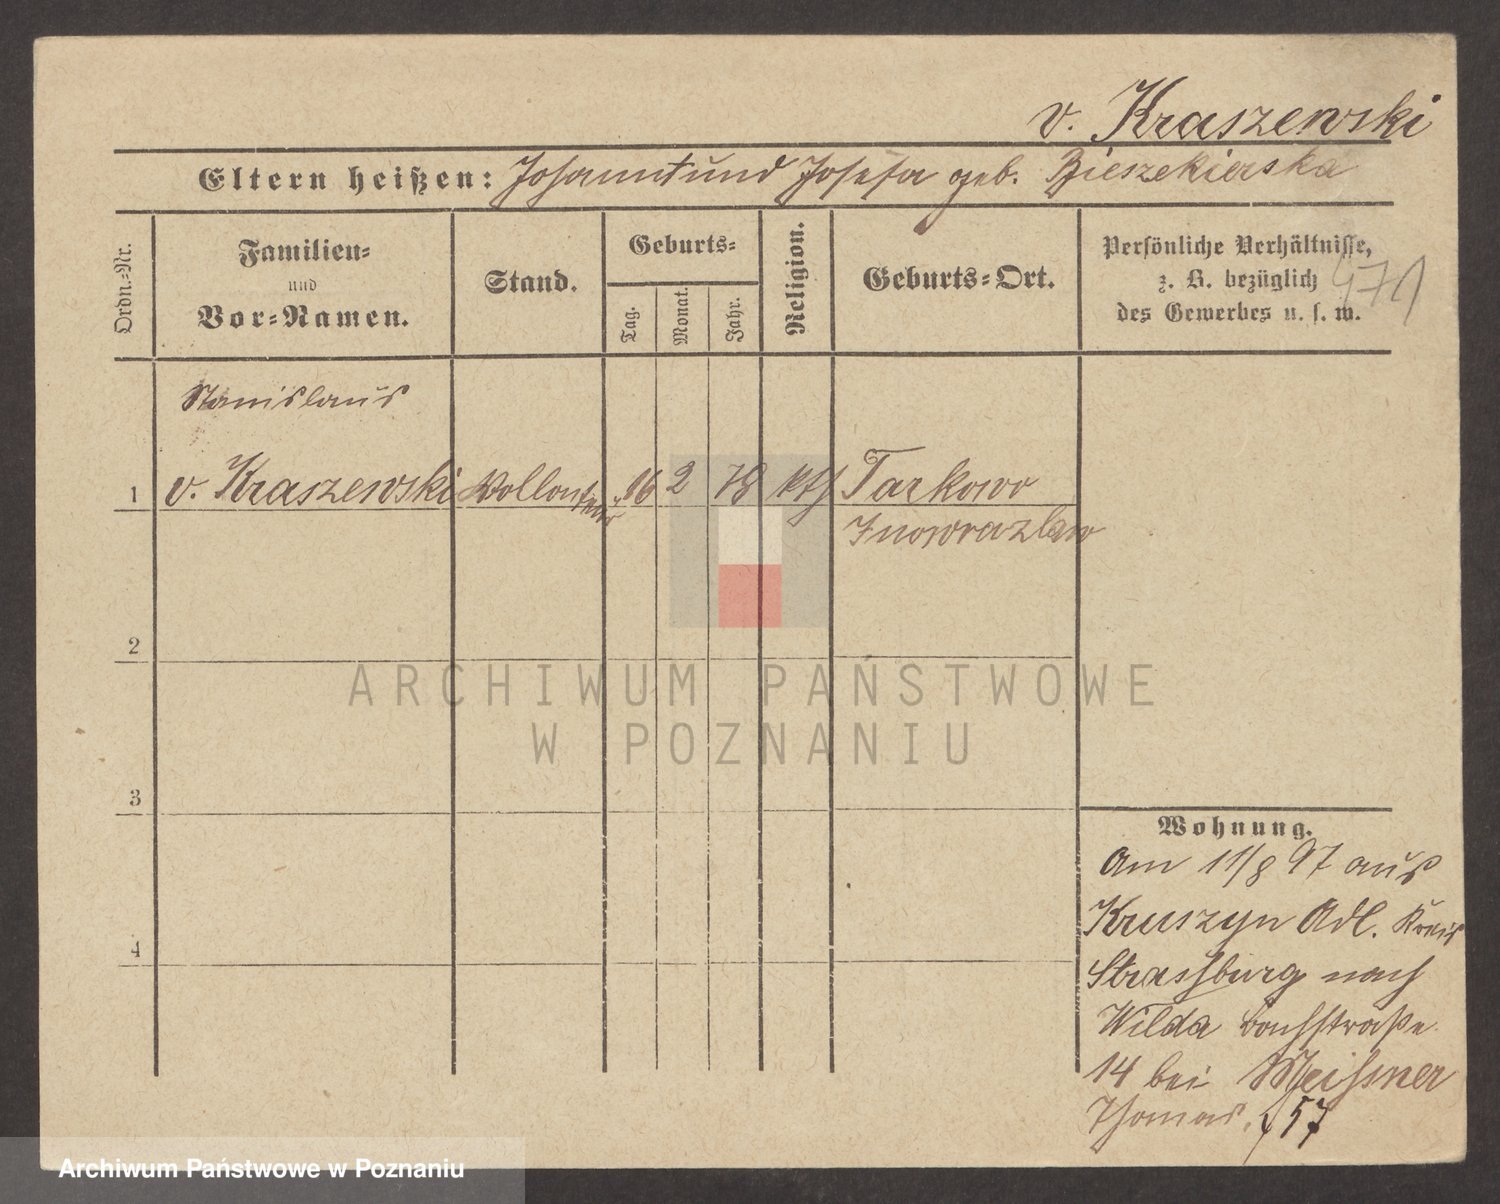 v. Kraszewski
Eltern heißen: Johann und Josefa geb. Bieszekierska
Ordn.-Nr.
Familien-
und
Vor-Namen.
Stand.
Geburts-
Tag.
Monat.
Jahr.
Religion.
Geburts-Ort.
Persönliche Verhältnisse,
z. B. bezüglich
des Gewerbes u. s. w.
Stanislaus
1 v. Kraszewski 16 2 78 kth Tarkowo
Inowrazlaw
2
3
4
Wohnung.
Am 11/8 97 aus
Kruszyn Adl. Kreis
Strassburg nach
Wilda Bachstraße
14 bei Meissner
Thomas. 57
ARCHIWUM PAŃSTWOWE
W POZNANIU
Archiwum Państwowe w Poznaniu